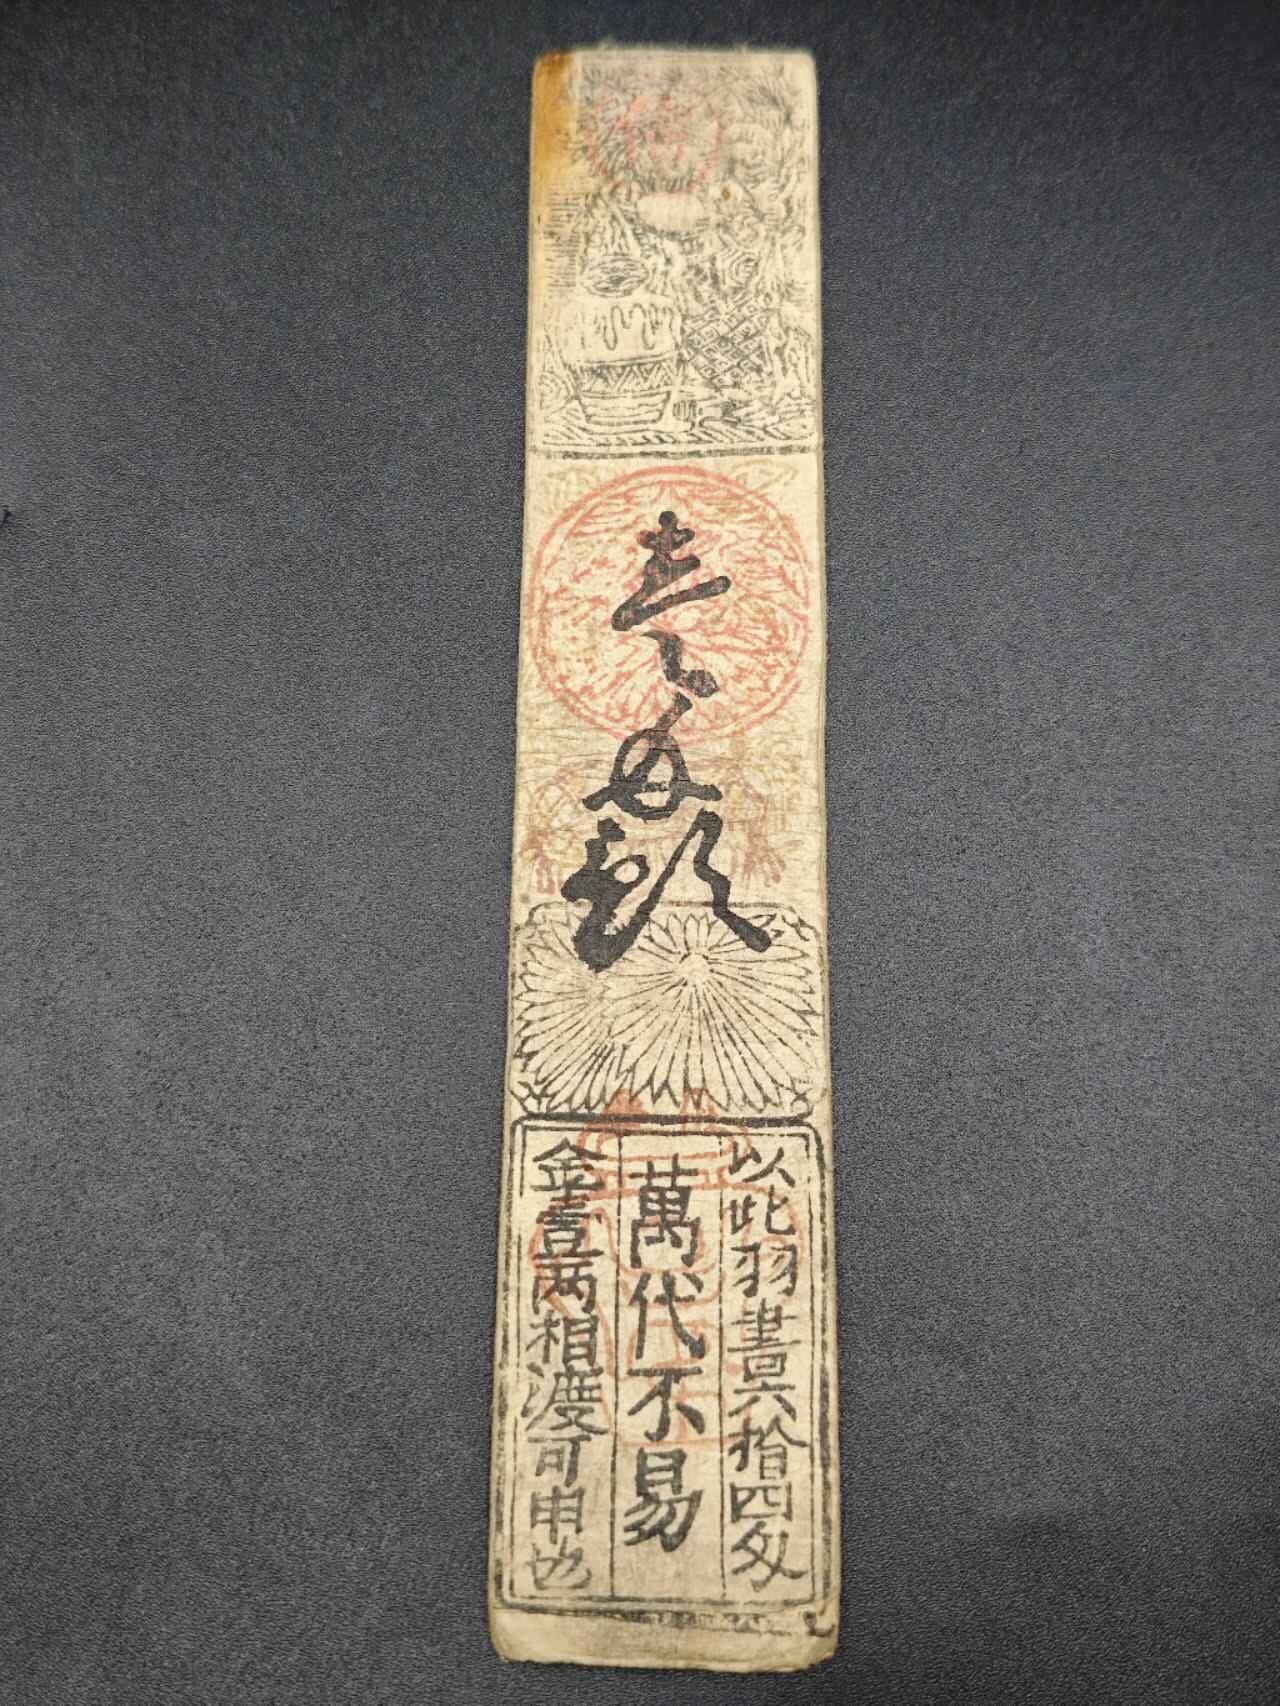 壱匁
以此羽書六拾四匁
萬代不易
金壹両相渡可申也